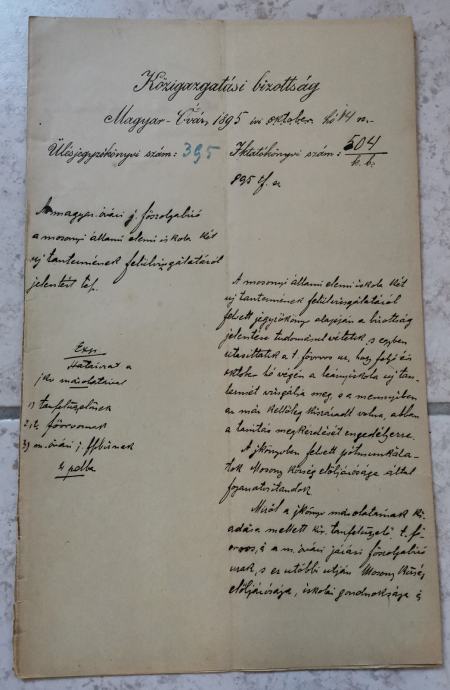 Közigazgatási bizottság
Magyar-Óvár, 1895 évi október hó 14 n.
Ülésjegyzőkönyvi szám: 395
Iktatókönyvi szám: 504
k. b.
895
A magyar-óvári j. főszolgabíró
a mosonyi állami elemi iskola két
új tantermének felülvizsgálatáról
jelentést tesz.
Határozat a
jkv másolatával
1) tanfelügyelőnek
2) főorvosnak
3) m. óvári j. főbírónak
A mosonyi állami elemi iskola két
új tantermének felülvizsgálatáról
felvett jegyzőkönyv alapján a bizottság
jelentése tudomásul vétetik s egyben
utasíttatik a t. főorvos úr, hogy folyó évi
október hó végén a leányiskola új tan-
termét vizsgálja meg, s a mennyiben
az már kellőleg kiszáradt volna, abban
a tanítás megkezdését engedélyezze.
A jkönyvben felvett pótmunkála-
tok Mosony község elöljárósága által
foganatosítandók
Miről a jkönyv másolatának ki-
adása mellett kir. tanfelügyelő t. fő-
orvos, s a m. óvári járási főszolgabíró
urak, s ez utóbbi útján Mosony község
elöljárósága, iskolai gondnoksága